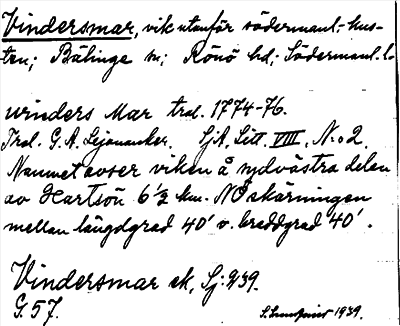 Vindersmar, vik utanför södermanl.-kus-
ten; Bälinge sn; Rönö hd; Södermanl. l.
winders Mar tral. 1774-76.
Tral. G. A. Lejonanker. SjA, Litt. VIII, N:o 2.
Namnet avser viken å sydvästra delen
av Hartsön 6½ km. NÖ skärningen
mellan längdgrad 40' o. breddgrad 40'.
Vindersmar ek, Sj: 939.
G. 57.
1939.